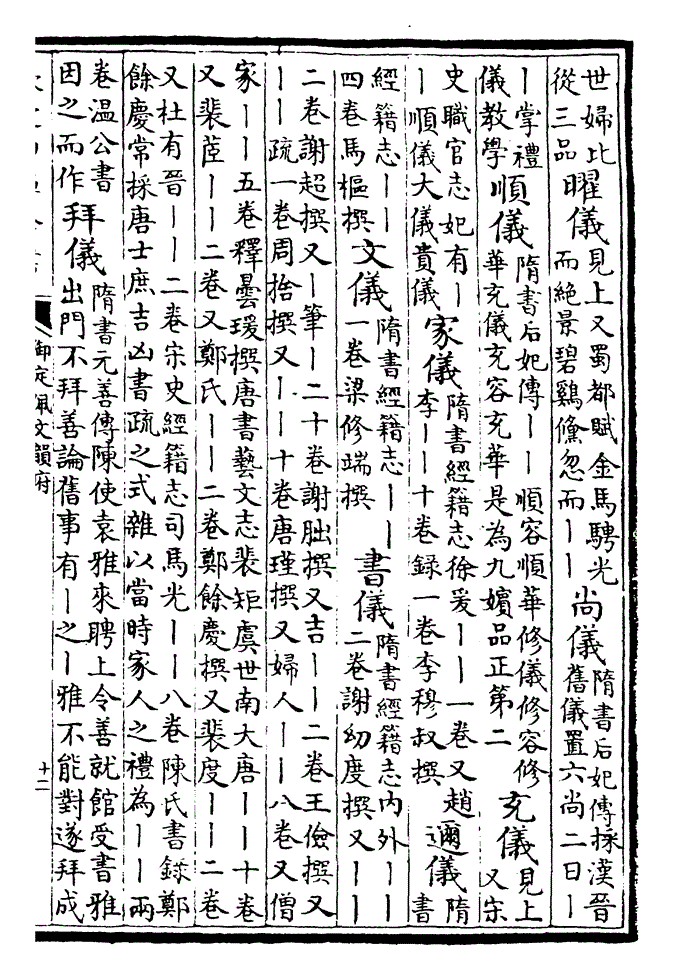 世婦比從三品曜儀見上又蜀都賦金馬騁光而絶景碧鷄儵忽而丨丨尚儀隋書后妃傳採漢晉舊儀置六尚二曰丨
丨掌禮儀教學順儀隋書后妃傳丨丨順容順華修儀修容修華充儀充容充華是為九嬪品正第二充儀見上又宋
史職官志妃有丨丨順儀大儀貴儀家儀隋書經籍志徐爰丨丨一卷又趙李丨丨十卷録一卷李穆叔撰邇儀隋書
經籍志丨丨四卷馬樞撰文儀隋書經籍志丨丨一卷梁修端撰書儀隋書經籍志內外丨丨二卷謝㓜度撰又丨丨
二卷謝超撰又丨筆丨二十卷謝朏撰又吉丨丨二卷王儉撰又丨丨疏一卷周捨撰又丨丨十卷唐瑾撰又婦人丨丨八卷又僧
家丨丨五卷釋曇瑗撰唐書藝文志裴矩虞世南大唐丨丨十卷又裴茝丨丨二卷又鄭氏丨丨二卷鄭餘慶撰又裴度丨丨二卷
又杜有晉丨丨二卷宋史經籍志司馬光丨丨八卷陳氏書錄鄭餘慶常採唐士庶吉凶書疏之式雜以當時家人之禮為丨丨兩
卷温公書因之而作拜儀隋書元善傳陳使袁雅來聘上令善就館受書雅出門不拜善論舊事有丨之丨雅不能對遂拜成
御定佩文韻府
十二